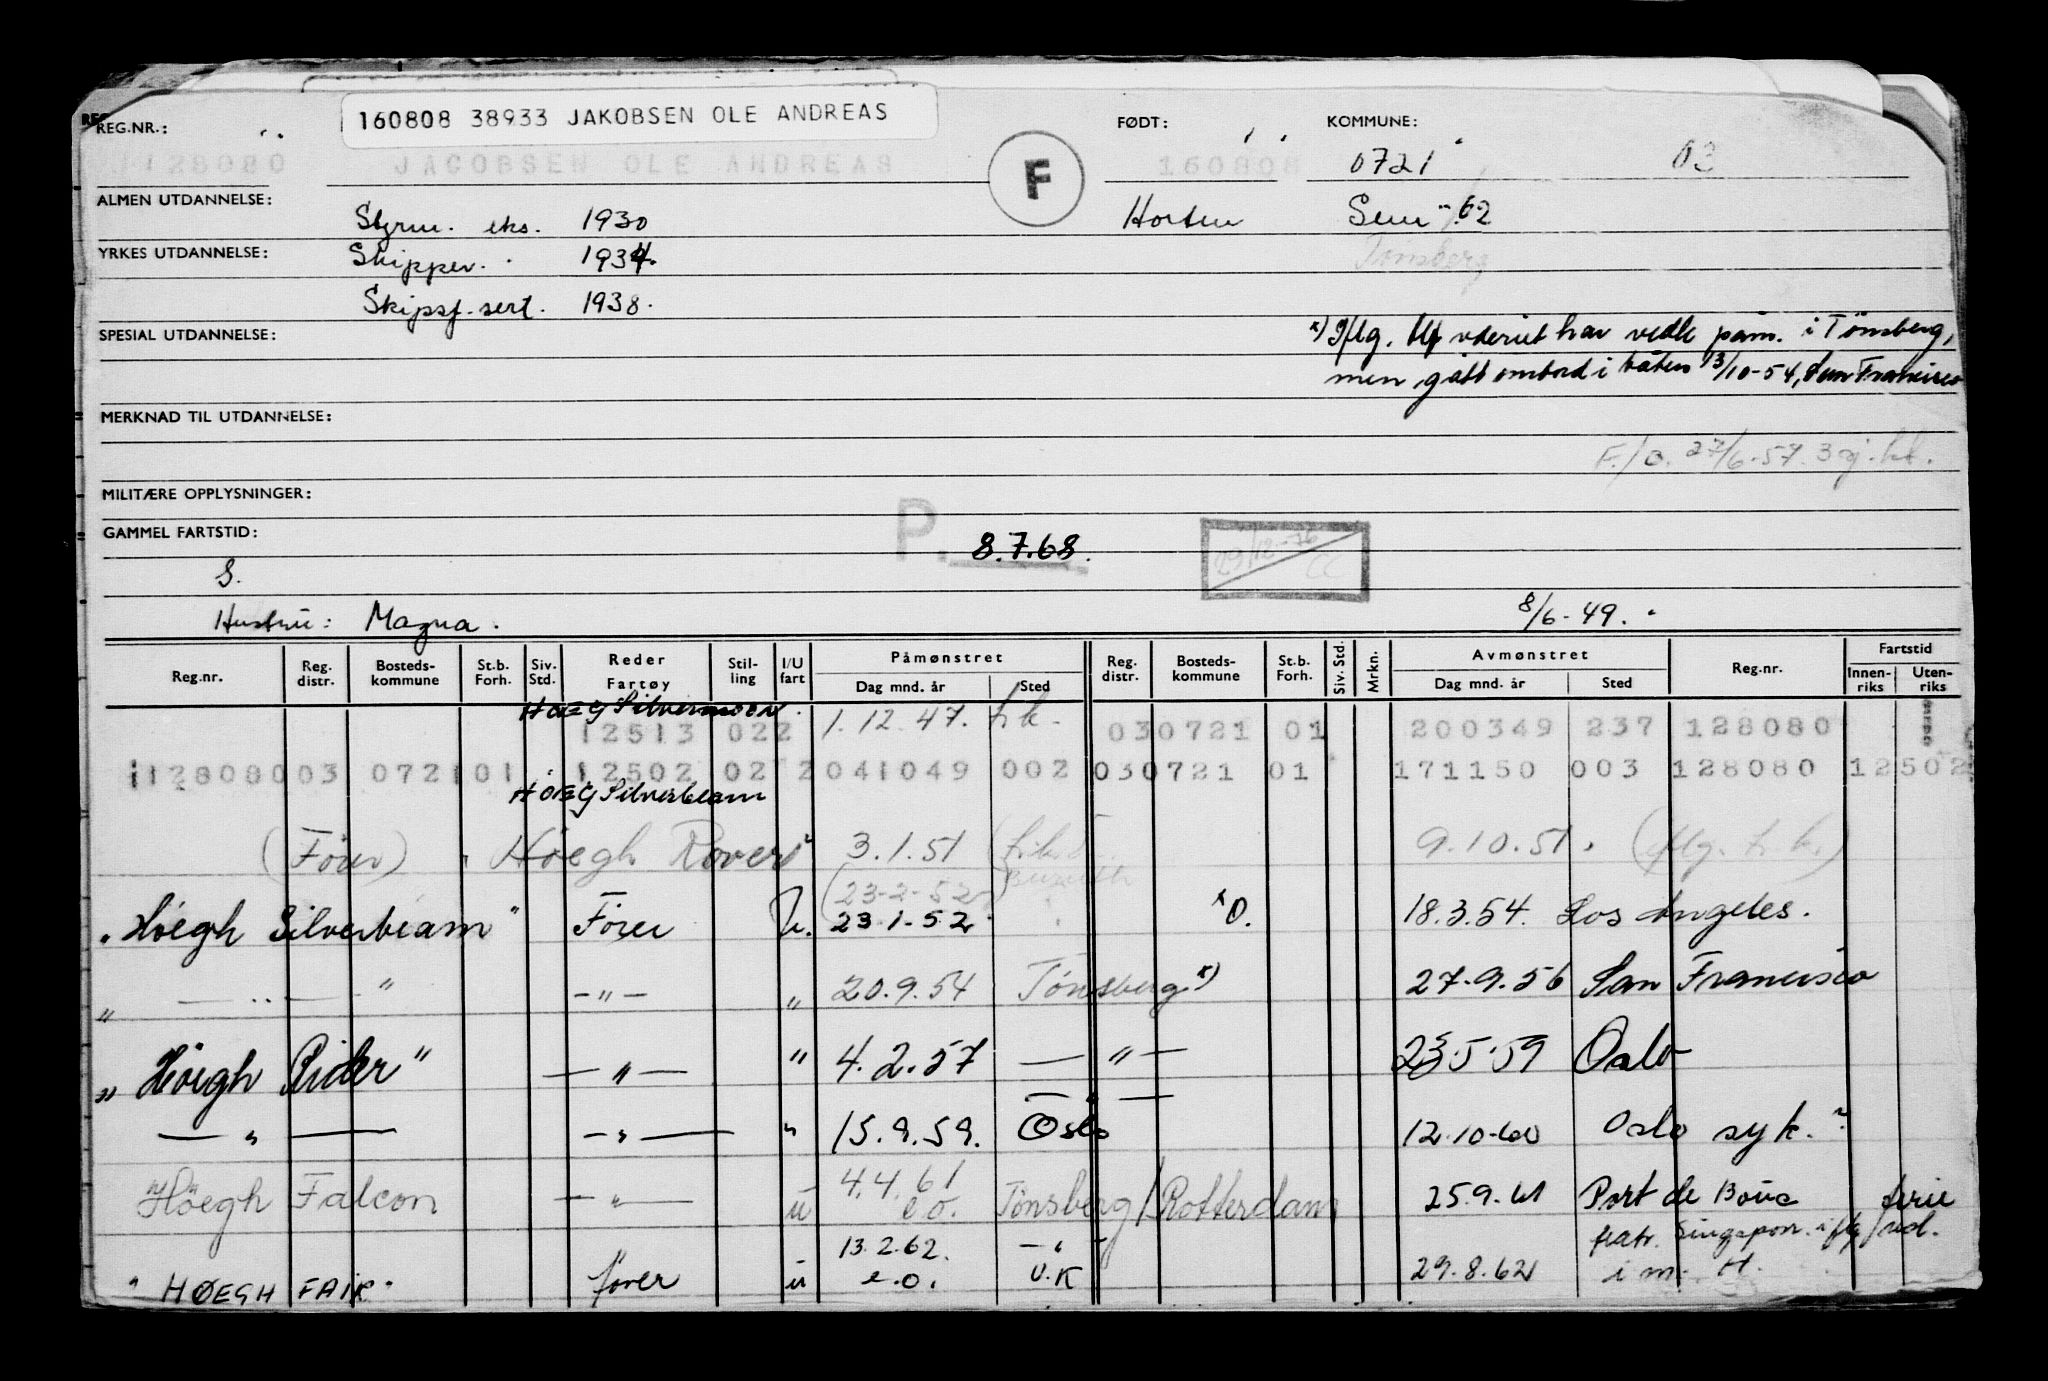 160808 38933 JAKOBSEN OLE ANDREAS
REG.NR.:
FØDT:
KOMMUNE:
128080 JACOBSEN OLE ANDREAS
F
160808
0721
03
ALMEN UTDANNELSE:
Styrm. eks. 1930
Horten
Sem 62
YRKES UTDANNELSE:
Skipper 1934.
Tønsberg
Skipsf. sert. 1938.
SPESIAL UTDANNELSE:
x) Iflg. vedk påm. i Tönsberg,
men gått ombord i båten 13/10-54, San Francisco
MERKNAD TIL UTDANNELSE:
F./O. 27/6-57.
MILITÆRE OPPLYSNINGER:
GAMMEL FARTSTID:
P. 8.7.68.
29/12-76
CC
S.
Hustru: Magna.
8/6-49.
Reg.nr. Reg. distr. Bosteds-kommune St.b. Forh. Siv. Std. Reder Fartøy Stil-ling I/U fart Påmønstret Dag mnd. år Sted Reg. distr. Bosteds-kommune St.b. Forh. Siv. Std. Mrkn. Avmønstret Dag mnd. år Sted Reg.nr. Fartstid Innen-riks Uten-riks
HØEG Silvermoon
12513 022 1.12.47. h.k. 030721 01 200349 237 128080
112808003 072101 12502 02 2 041049 002 030721 01 171150 003 128080 12502
HØEG Silverbeam
(Förer) Höegh Rover 3.1.51 (h.k. 9.10.51. (iflg. h.k.)
(23-2-52)
"Höegh Silverbeam" Förer U. 23.1.52 x O. 18.3.54. Los Angeles.
" — " — " — " — " 20.9.54 Tönsberg x) 27.9.56 San Francisco
"Höegh Rider" — " — " 4.2.57 — " — 23.5.59 Oslo
— " —
— " — — " — " 15.9.59. Oslo 12.10.60 Oslo syk.
"Höegh Falcon — " — u 4.4.61 e.o. Tönsberg/Rotterdam 25.9.61 Port de Bouc ferie
fratr. Singapore iflg red.
"HØEGH FAIR" förer u 13.2.62. e.o. — " — U.K 29.8.62 i m. H.